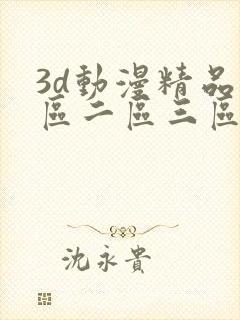 3d動漫精品
區二區三區
沈永貴